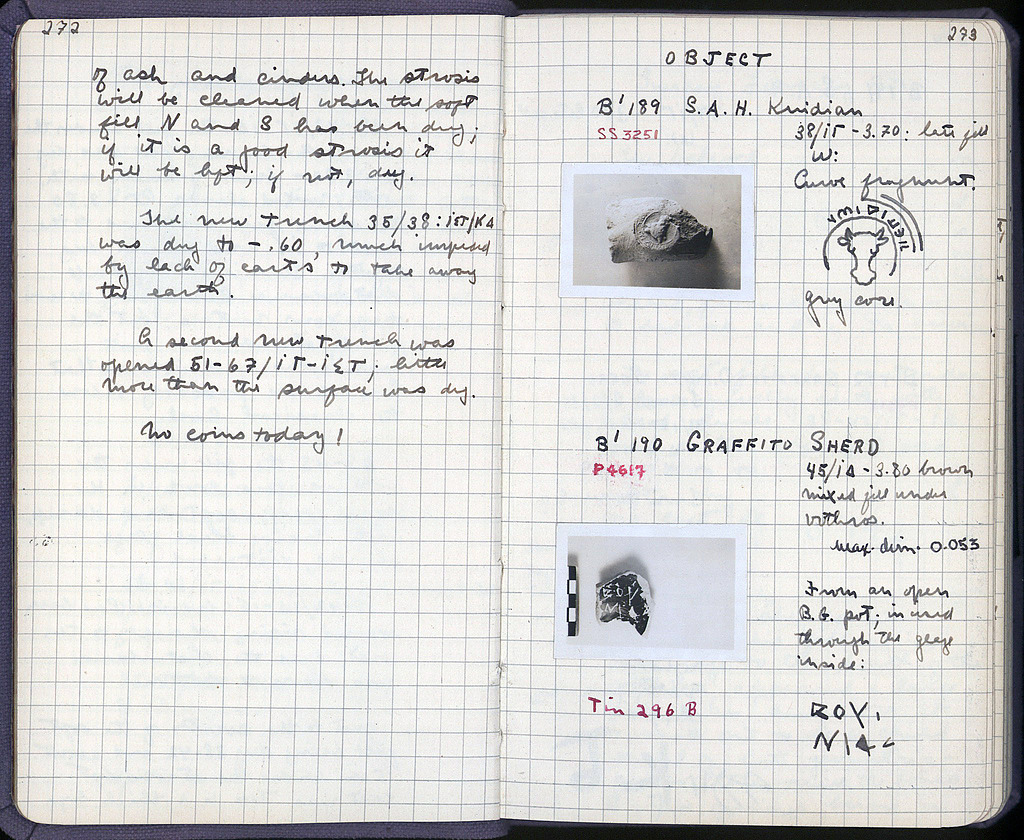 272
of ash and cinders. The strosis
will be cleaned when the soft
fill N and S has been dug;
if it is a good strosis it
will be left; if not, dug.
The new trench 35/38:ιστ/ΚΔ
was dug to -.60, much impeded
by lack of carts to take away
the earth.
A second new trench was
opened 51-67/ιΓ-ιΣΤ; little
more than the surface was dug.
No coins today!
273
OBJECT
B' 189 S.A.H. Knidian
SS 3251
38/ιΓ -3.70: late fill
W:
Curve fragment.
grey core.
B' 190 GRAFFITO SHERD
P 4617
45/ιΔ -3.80 brown
mixed fill under
bothros.
max. dim. 0.053
From an open
B.G. pot; incised
through the glaze
inside:
Tin 296 B